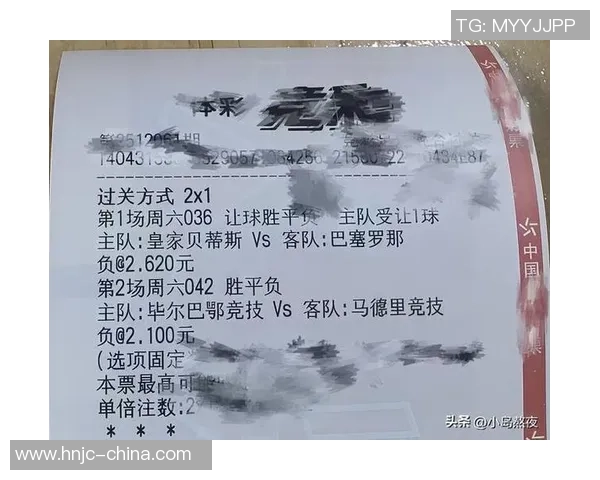 TG: MYYJJPP
体彩 竞彩
过关方式 2x1
第1场周六036 让球胜平负 主队受让1球
主队:皇家贝蒂斯 Vs 客队:巴塞罗那
负@2.620元
第2场周六042 胜平负
主队:毕尔巴鄂竞技 Vs 客队:马德里竞技
负@2.100元
(选项固定
本票最高可
单倍注数:2
* * *
中国
头条 @小岛熬夜
www.hnjc-china.com